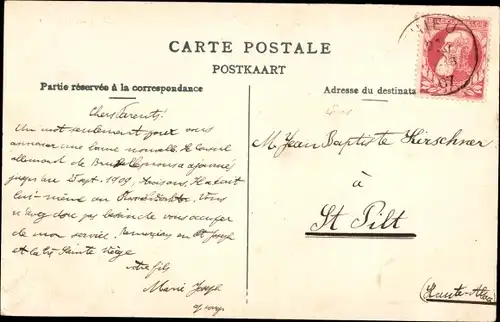 CARTE POSTALE
POSTKAART
Partie réservée à la correspondance
Adresse du destinata
Chers Parents!
Un mot seulement pour vous
annoncer une bonne nouvelle. Le Consul
allemand de Bruxelles nous a ajournés
jusqu'au 25 Sept. 1909,
lui-même au Vous
n'avez donc pas besoin de vous occuper
de mon service. Remerciez en St Joseph
et la très Sainte Vierge
Votre fils
Marie Joseph
M. Jean Baptiste Kirschner
à
St Pilt
(Haute-Alsace)